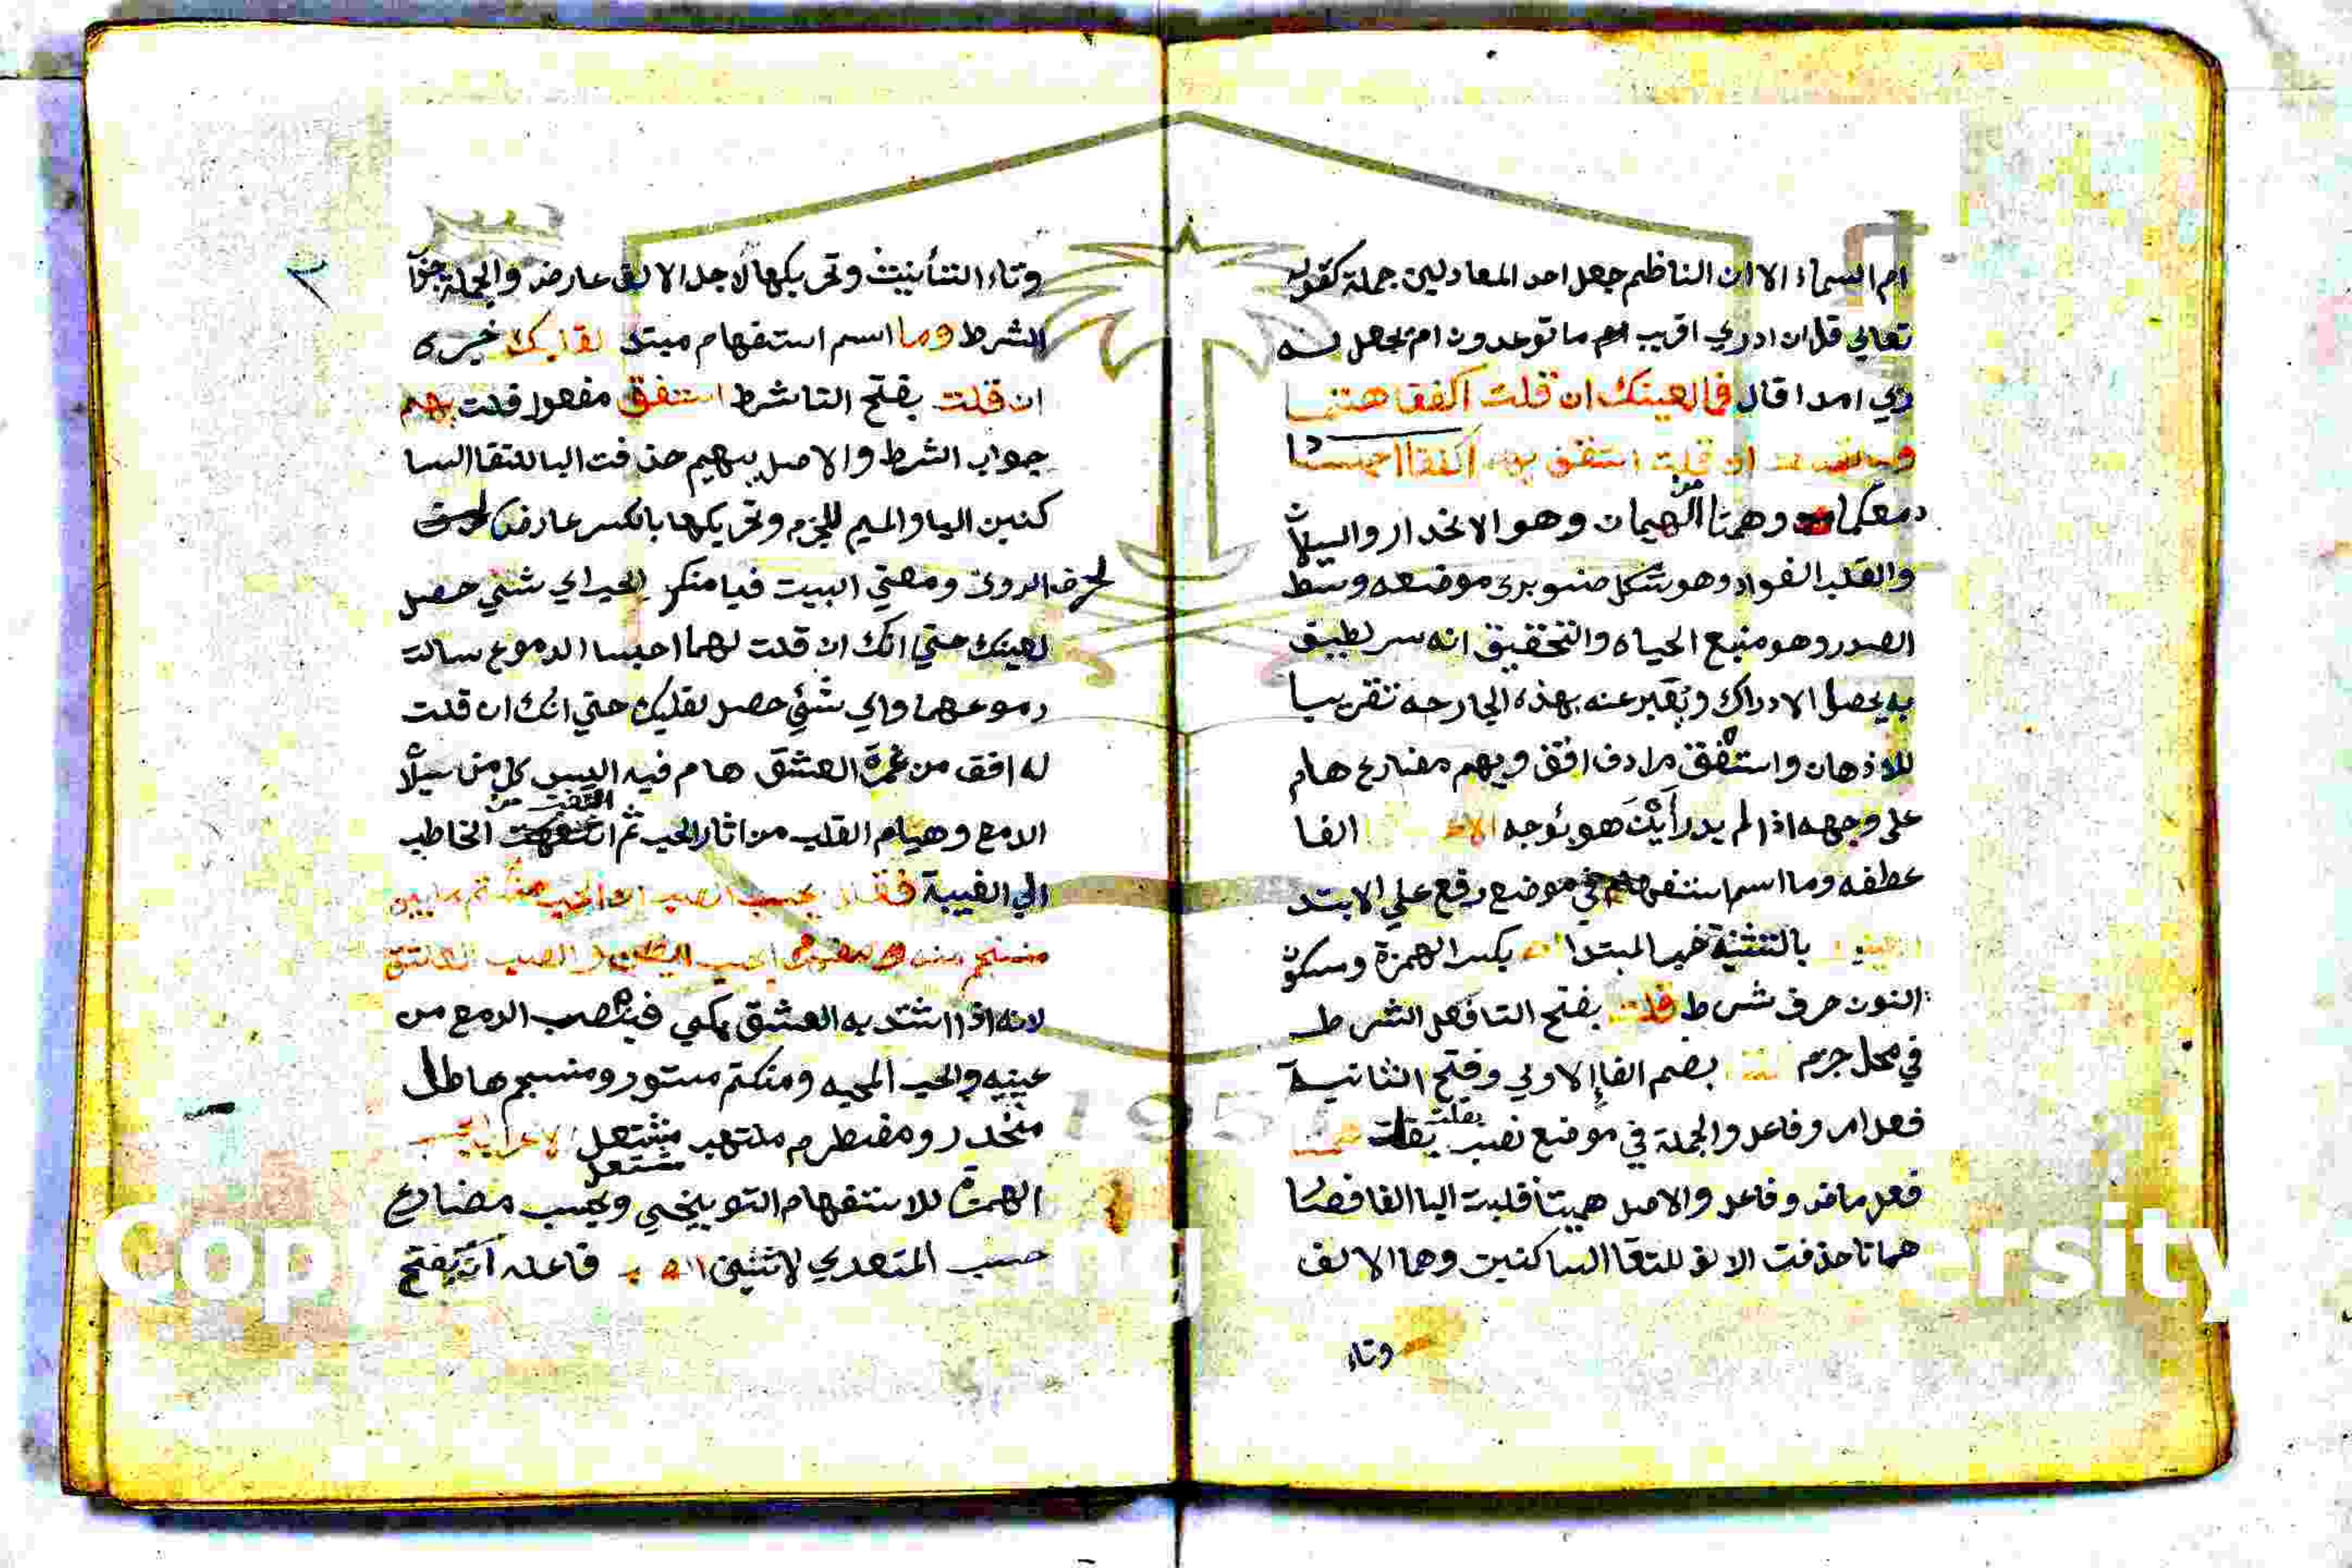 ام السماء الا ان الناظم جعل احد المعادلين جملة كقوله
تعالي قل ان ادري اقريب ام ما توعدون ام يجعل له
ربي امدا قال فما لعينيك ان قلت اكففا همتا
وما لقلبك ان قلت استفق يهم اكففا احبسا
دمعكما وهمتا من الهيمان وهو الانحدار والسيلان
والقلب الفواد وهو شكل صنوبري موضعه وسط
الصدر وهو منبع الحياه والتحقيق انه سر لطيف
به يحصل الادراك ويعبر عنه بهذه الجارحه تقريبا
للاذهان واستفق مرادف افق ويهم مضارع هام
علي وجهه اذا لم يدر اين هو يتوجه الفا
عطفه وما اسم استفهام في موضع رفع علي الابتد
بالتثنية خبر المبتدا ان بكسر الهمزة وسكون
النون حرف شرط قلت بفتح التا فعل الشرط
في محل جزم بضم الفا الاولي وفتح الثانية
فعل امر وفاعل والجملة في موضع نصب بقلت همتا
فعل ماض وفاعل والاصل هميتا قلبت اليا الفا فصار
هماتا حذفت الالف للتقا الساكنين وهما الالف
وتاء
وتاء التأنيث وتحريكها لاجل الالف عارض والجملة جواب
الشرط وما اسم استفهام مبتد لقلبك خبره
ان قلت بفتح التا شرط استفق مفعول قلت يهم
جواب الشرط والاصل يهيم حذفت اليا للتقا السا
كنين اليا والميم للجزم وتحريكها بالكسر عارض
لحرف الروي ومعني البيت فيا منكر الحب اي شئي حصل
لعينيك حتي انك ان قلت لهما احبسا الدموع سالت
دموعهما واي شئي حصل لقلبك حتي انك ان قلت
له افق من غمرة العشق هام فيه اليس كل من سيلان
الدمع وهيام القلب من اثار الحب ثم التفت من الخاطب
الي الغيبة فقال ايحسب الصب ان الحب منكتم ما بين
منسجم منه ومضطرم ايحسب الصب العاشق
لانه اذا اشتد به العشق يبكي فينصب الدمع من
عينيه والحب المحبه ومنكتم مستور ومنسجم هاطل
منحدر ومضطرم ملتهب مشتعل الاعراب ايحسب
مشتعل
الهمزة للاستفهام التوبيخي ويحسب مضارع
حسب المتعدي لاثنين الصب فاعله ان بفتح